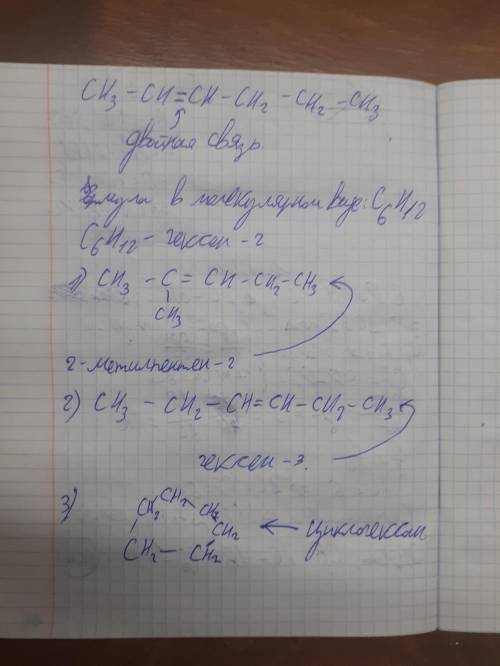 CH3 - CH = CH - CH2 - CH2 - CH3
двойная связь.
формула в молекулярном виде: C6H12
C6H12 - гексен - 2
1) CH3 - C = CH - CH2 - CH3
CH3
2-метилпентен-2
2) CH3 - CH2 - CH = CH - CH2 - CH3
гексен - 3.
3) CH2 CH2 - CH2
CH2 ← циклогексан
CH2 - CH2